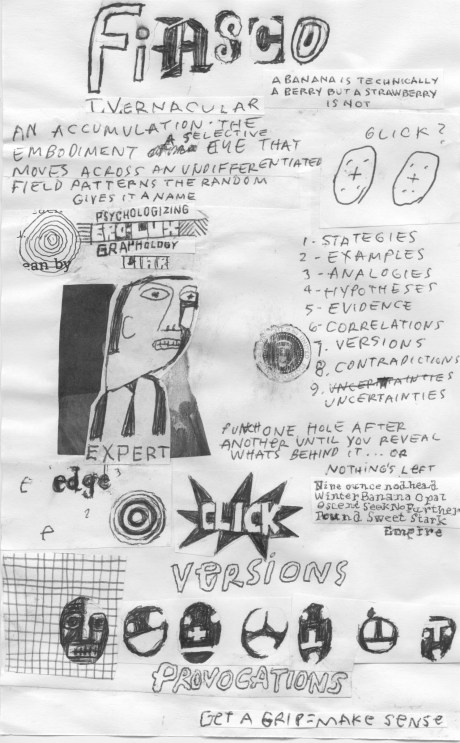 FiASCO
A BANANA IS TECHNICALLY
A BERRY BUT A STRAWBERRY
IS NOT
T. VERNACULAR
AN ACCUMULATION · THE
EMBODIMENT A SELECTIVE EYE THAT
MOVES ACROSS AN UNDIFFERENTIATED
FIELD PATTERNS THE RANDOM
GIVES IT A NAME
GLICK?
PSYCHOLOGIZING
GRAPHOLOGY
LIAR
ean by
1- STATEGIES
2- EXAMPLES
3- ANALOGIES
4- HYPOTHESES
5- EVIDENCE
6- CORRELATIONS
7. VERSIONS
8. CONTRADICTIONS
9. UNCERTAINTIES
UNCERTAINTIES
EXPERT
PUNCH ONE HOLE AFTER
ANOTHER UNTIL YOU REVEAL
WHATS BEHIND IT... OR
NOTHING'S LEFT
edge
?
CLICK
Nine ounce nodhead
Winter Banana Opal
Oscent Seek No Further
Pound Sweet Stark
Empire
VERSIONS
PROVOCATIONS
GET A GRIP = MAKE SENSE